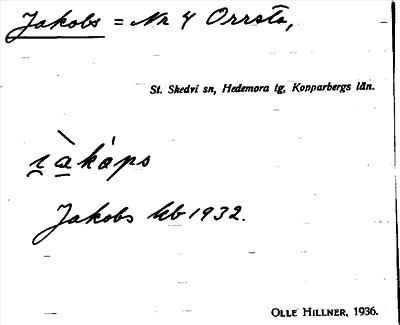 Jakobs = Nr 4 Orrsta,
St. Skedvi sn, Hedemora tg, Kopparbergs län.
i̯àkáps
Jakobs kb 1932.
OLLE HILLNER, 1936.